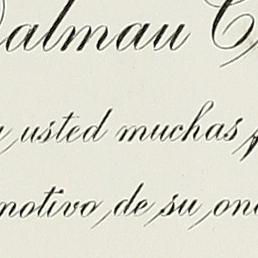 Dalmau
usted muchas
motivo, de su